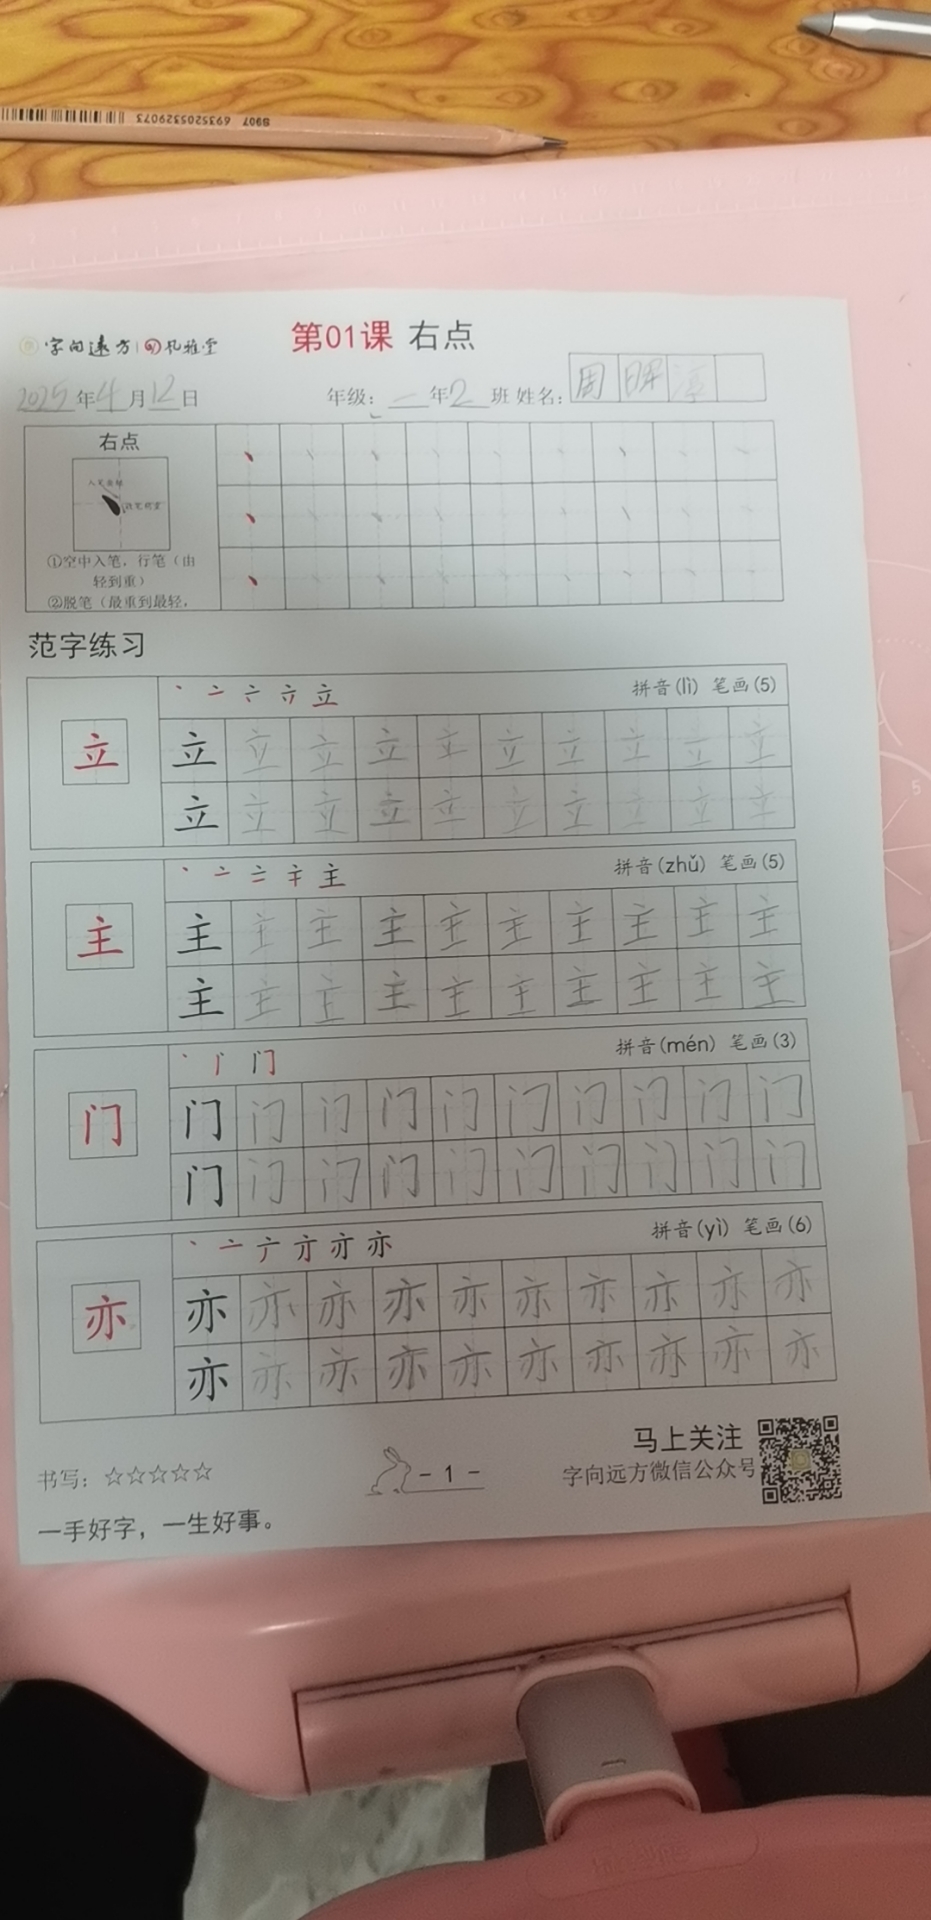 6935205329073 8907
字向远方 札雅堂
第01课 右点
2025年4月12日 年级：一年2班 姓名：周
右点
①空中入笔，行笔（由
轻到重）
②脱笔（最重到最轻，
范字练习
丶 亠 立 拼音(lì) 笔画(5)
立 立 立 立 立 立 立 立 立 立 立
立 立 立 立 立 立 立 立 立 立
丶 亠 主 拼音(zhǔ) 笔画(5)
主 主 主 主 主 主 主 主 主 主 主
主 主 主 主 主 主 主 主 主 主
丶 门 拼音(mén) 笔画(3)
门 门 门 门 门 门 门 门 门 门 门
门 门 门 门 门 门 门 门 门 门
丶 亠 亦 拼音(yì) 笔画(6)
亦 亦 亦 亦 亦 亦 亦 亦 亦 亦 亦
亦 亦 亦 亦 亦 亦 亦 亦 亦 亦
马上关注
书写：☆☆☆☆☆ - 1 - 字向远方微信公众号
一手好字，一生好事。